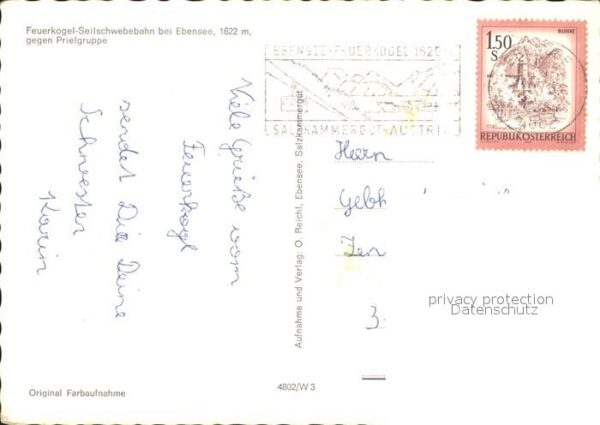 Feuerkogel-Seilschwebebahn bei Ebensee, 1622 m,
gegen Prielgruppe
EBENSEE-FEUERKOGEL 1625
SALZKAMMERGUT-AUSTRI
1.50
S
REPUBLIK ÖSTERREICH
Viele Grüße vom
Feuerkogl
sendet Dir Deine
Schwester
Karin
Aufnahme und Verlag: O. Reichl, Ebensee, Salzkammergut
Herrn
Gebh
3
privacy protection
Datenschutz
4802/W 3
Original Farbaufnahme